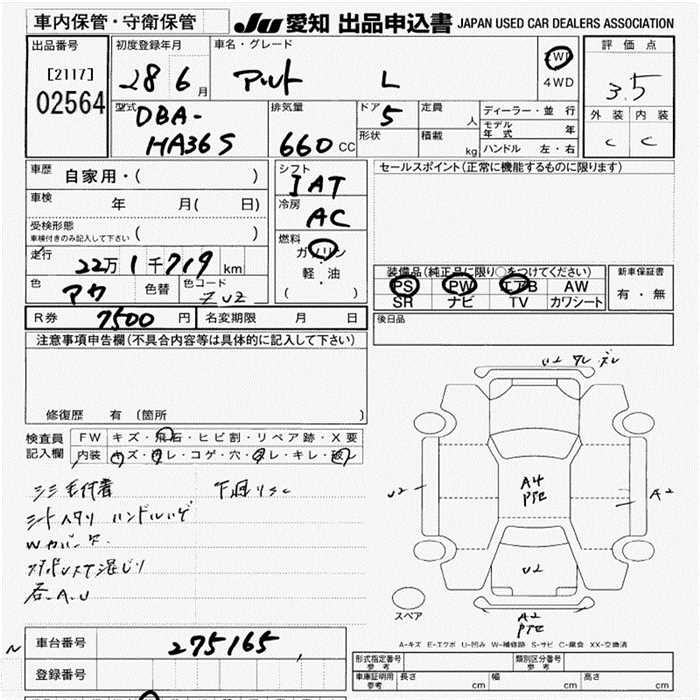 車内保管・守衛保管
JU 愛知 出品申込書 JAPAN USED CAR DEALERS ASSOCIATION
出品番号
[2117]
02564
初度登録年月
28 6月
車名・グレード
アルト L
2WD
4WD
評価点
3.5
外装 内装
C C
型式
DBA-
HA36S
排気量
660CC
ドア
5
形状
定員
人
積載
kg
ディーラー・並行
モデル年式 年
ハンドル 左・右
車歴 自家用・( )
車検 年 月( 日)
受検形態
車検付きのみ記入して下さい ( )
走行 22万1千719km
色 アカ 色替 色コード ZUZ
シフト
IAT
冷房
AC
燃料
ガソリン
・
軽・油
( )
セールスポイント(正常に機能するものに限ります)
装備品(純正品に限り○をつけてください)
PS PW エアB AW
SR ナビ TV カワシート
新車保証書
有・無
R券 7500円 名変期限 月 日
後日品
注意事項申告欄(不具合内容等は具体的に記入して下さい)
修復歴 有 (箇所 )
検査員記入欄
FW キズ・飛石・ヒビ割・リペア跡・X要
内装 キズ・ヨレ・コゲ・穴・スレ・キレ・破レ
シートスタリ ハンドルハゲ
Wカバー
右.A.U
U2
A4
A2
U2
A2
スペア
A-キズ E-エクボ U-凹み W-補修跡 S-サビ C-腐食 XX-交換済
車台番号 275165
登録番号
形式指定番号 参考 類別区分番号 参考
車庫証明用 参考 長さ cm 幅 cm 高さ cm